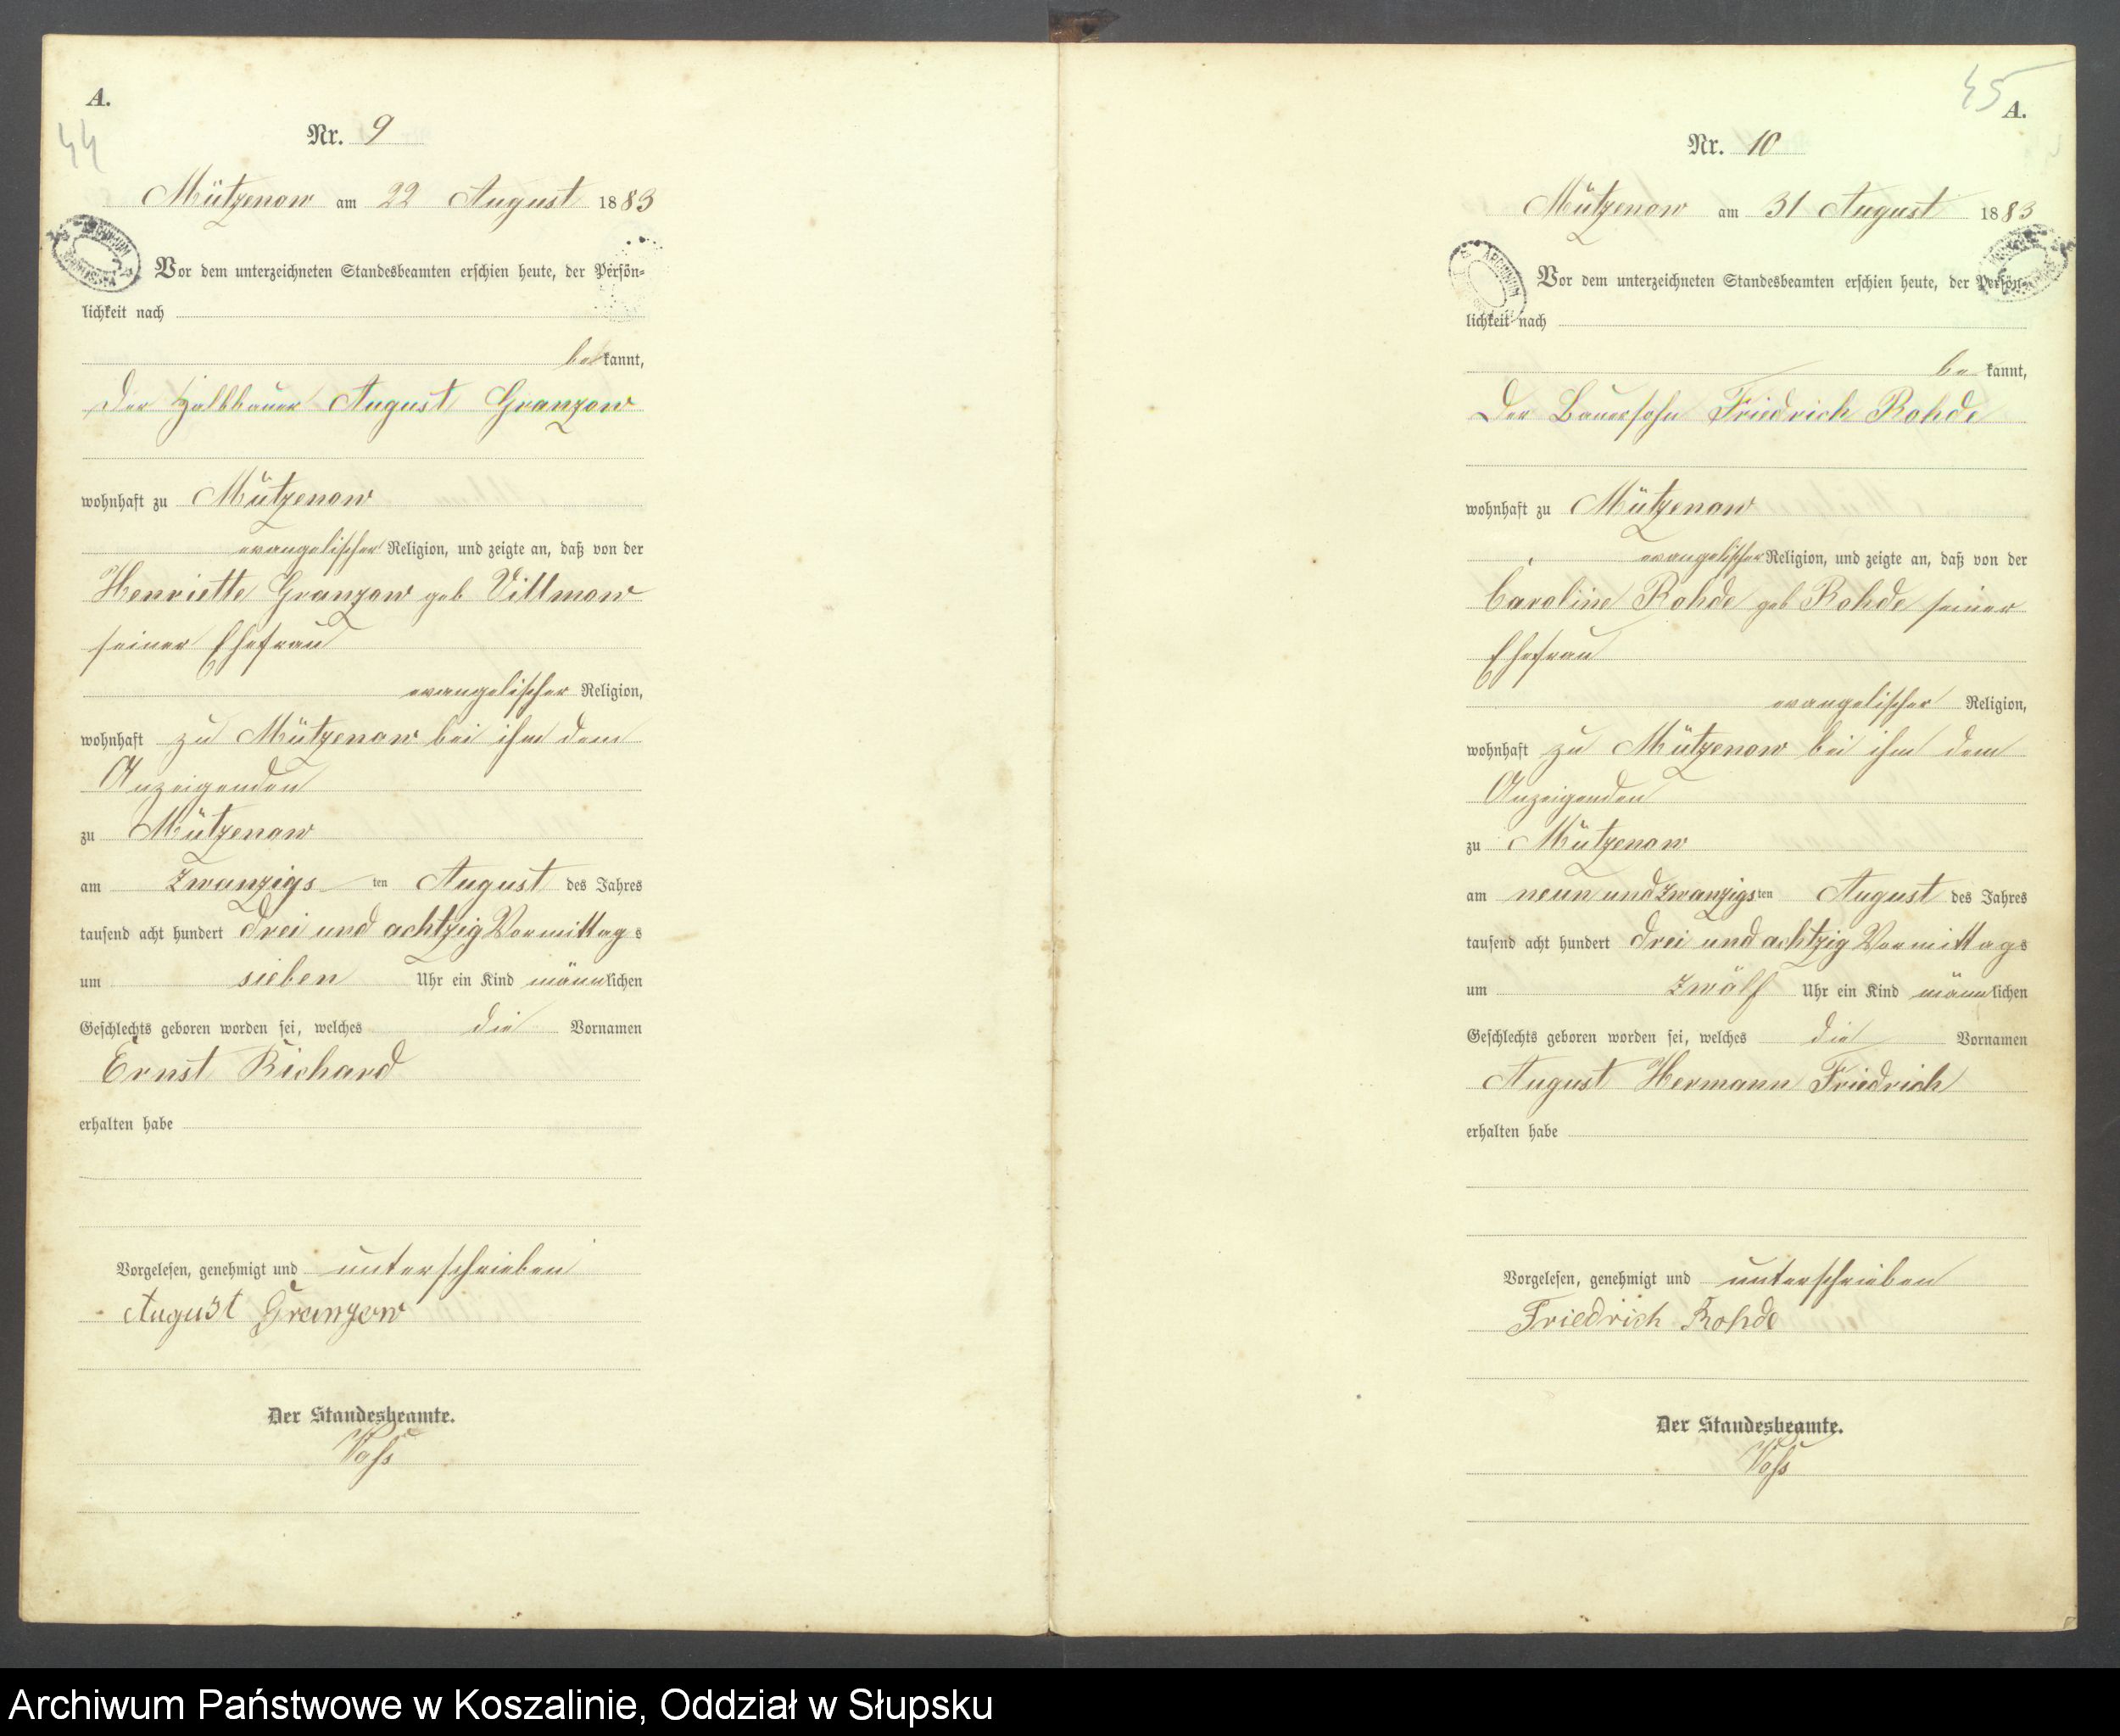 A.
44
Nr. 9
Mützenow am 22 August 1883
Vor dem unterzeichneten Standesbeamten erschien heute, der Persön=
lichkeit nach
bekannt,
Der Halbbauer August Granzow
wohnhaft zu Mützenow
evangelischer Religion, und zeigte an, daß von der
Henriette Granzow geb Villmow
seiner Ehefrau
evangelischer Religion,
wohnhaft zu Mützenow bei ihm dem
Anzeigenden
zu Mützenow
am Zwanzigsten August des Jahres
tausend acht hundert drei und achtzig Vormittags
um sieben Uhr ein Kind männlichen
Geschlechts geboren worden sei, welches die Vornamen
Ernst Richard
erhalten habe
Vorgelesen, genehmigt und unterschrieben
August Granzow
Der Standesbeamte.
Voss
45
A.
Nr. 10
Mützenow am 31 August 1883
ARCHIWUM
Vor dem unterzeichneten Standesbeamten erschien heute, der Persön=
lichkeit nach
bekannt,
Der Bauersohn Friedrich Rohde
wohnhaft zu Mützenow
evangelischer Religion, und zeigte an, daß von der
Caroline Rohde geb Rohde seiner
Ehefrau
evangelischer Religion,
wohnhaft zu Mützenow bei ihm dem
Anzeigenden
zu Mützenow
am neun und zwanzigsten August des Jahres
tausend acht hundert drei und achtzig Vormittags
um zwölf Uhr ein Kind männlichen
Geschlechts geboren worden sei, welches die Vornamen
August Hermann Friedrich
erhalten habe
Vorgelesen, genehmigt und unterschrieben
Friedrich Rohde
Der Standesbeamte.
Voss
Archiwum Państwowe w Koszalinie, Oddział w Słupsku